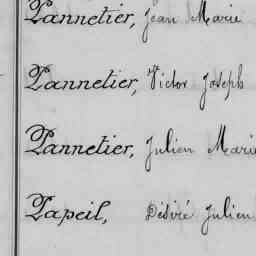 Pannetier, Jean Marie
Pannetier, Victor Joseph
Pannetier, Julien Marie
Papeil, Désiré Julien